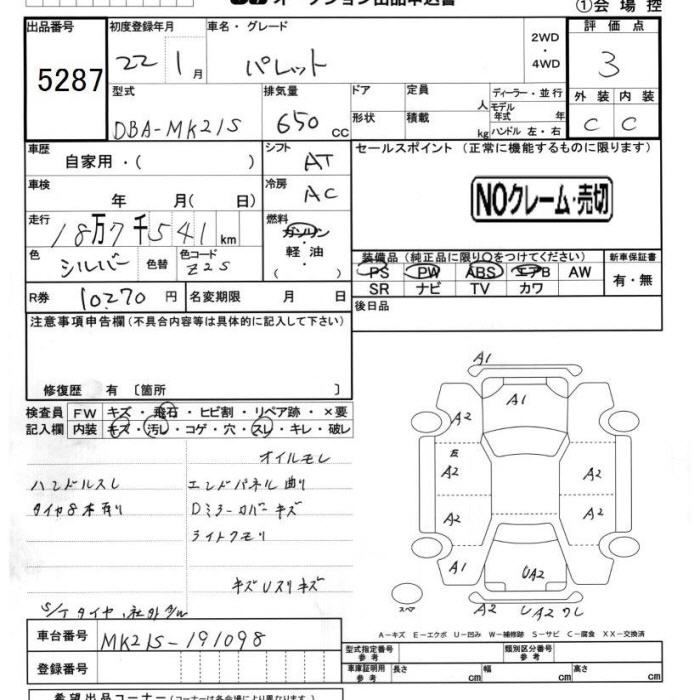 オークション出品申込書
①会場控
出品番号
5287
初度登録年月
22 1月
車名・グレード
パレット
2WD
・
4WD
評価点
3
型式
DBA-MK21S
排気量
650 cc
ドア
形状
定員 人
積載 kg
ディーラー・並行
モデル年式 年
ハンドル 左・右
外装 内装
C C
車歴
自家用・( )
シフト
AT
セールスポイント (正常に機能するものに限ります)
車検
年 月( 日)
冷房
AC
NOクレーム・売切
走行
18万7千541km
燃料
ガソリン
・
軽油
( )
色
シルバー
色替
色コード
Z2S
装備品 (純正品に限り○をつけてください)
PS PW ABS エアB AW
SR ナビ TV カワ
新車保証書
有・無
R券
10270円
名変期限 月 日
後日品
注意事項申告欄 (不具合内容等は具体的に記入して下さい)
修復歴 有 〔箇所 〕
検査員記入欄
FW キズ・飛石・ヒビ割・リペア跡・×要
内装 キズ・汚レ・コゲ・穴・スレ・キレ・破レ
オイルモレ
ハンドルスレ エンドパネル曲り
タイヤ8本有り Dミラーカバーキズ
ライトクモリ
キズUスリキズ
S/Tタイヤ、社外AW
A1
A1
A2
E
A2 A2
A2 A2
A1 UA2
スペア
A2 UA2ワレ
A-キズ E-エクボ U-凹み W-補修跡 S-サビ C-腐食 XX-交換済
車台番号
MK21S-191098
登録番号
型式指定番号 参考
類別区分番号 参考
車庫証明用 参考
長さ cm 幅 cm 高さ cm
希望出品コーナー (コーナーは各会場により異なります)